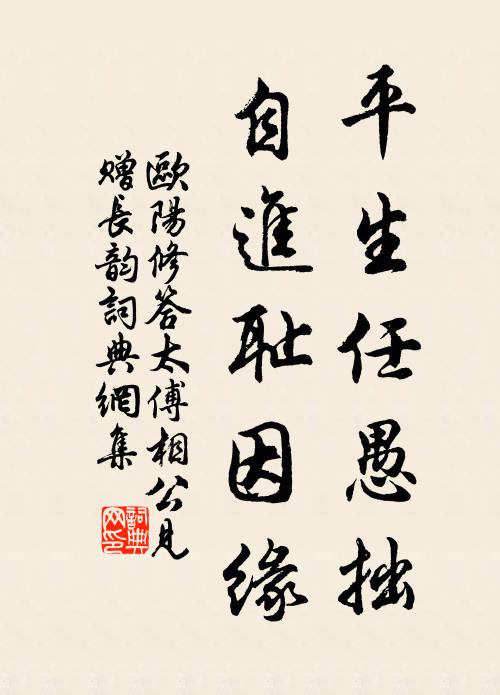 平生任愚拙
自進恥因緣
歐陽修答太傅相公見
贈長韵詞典網集
詞典網印